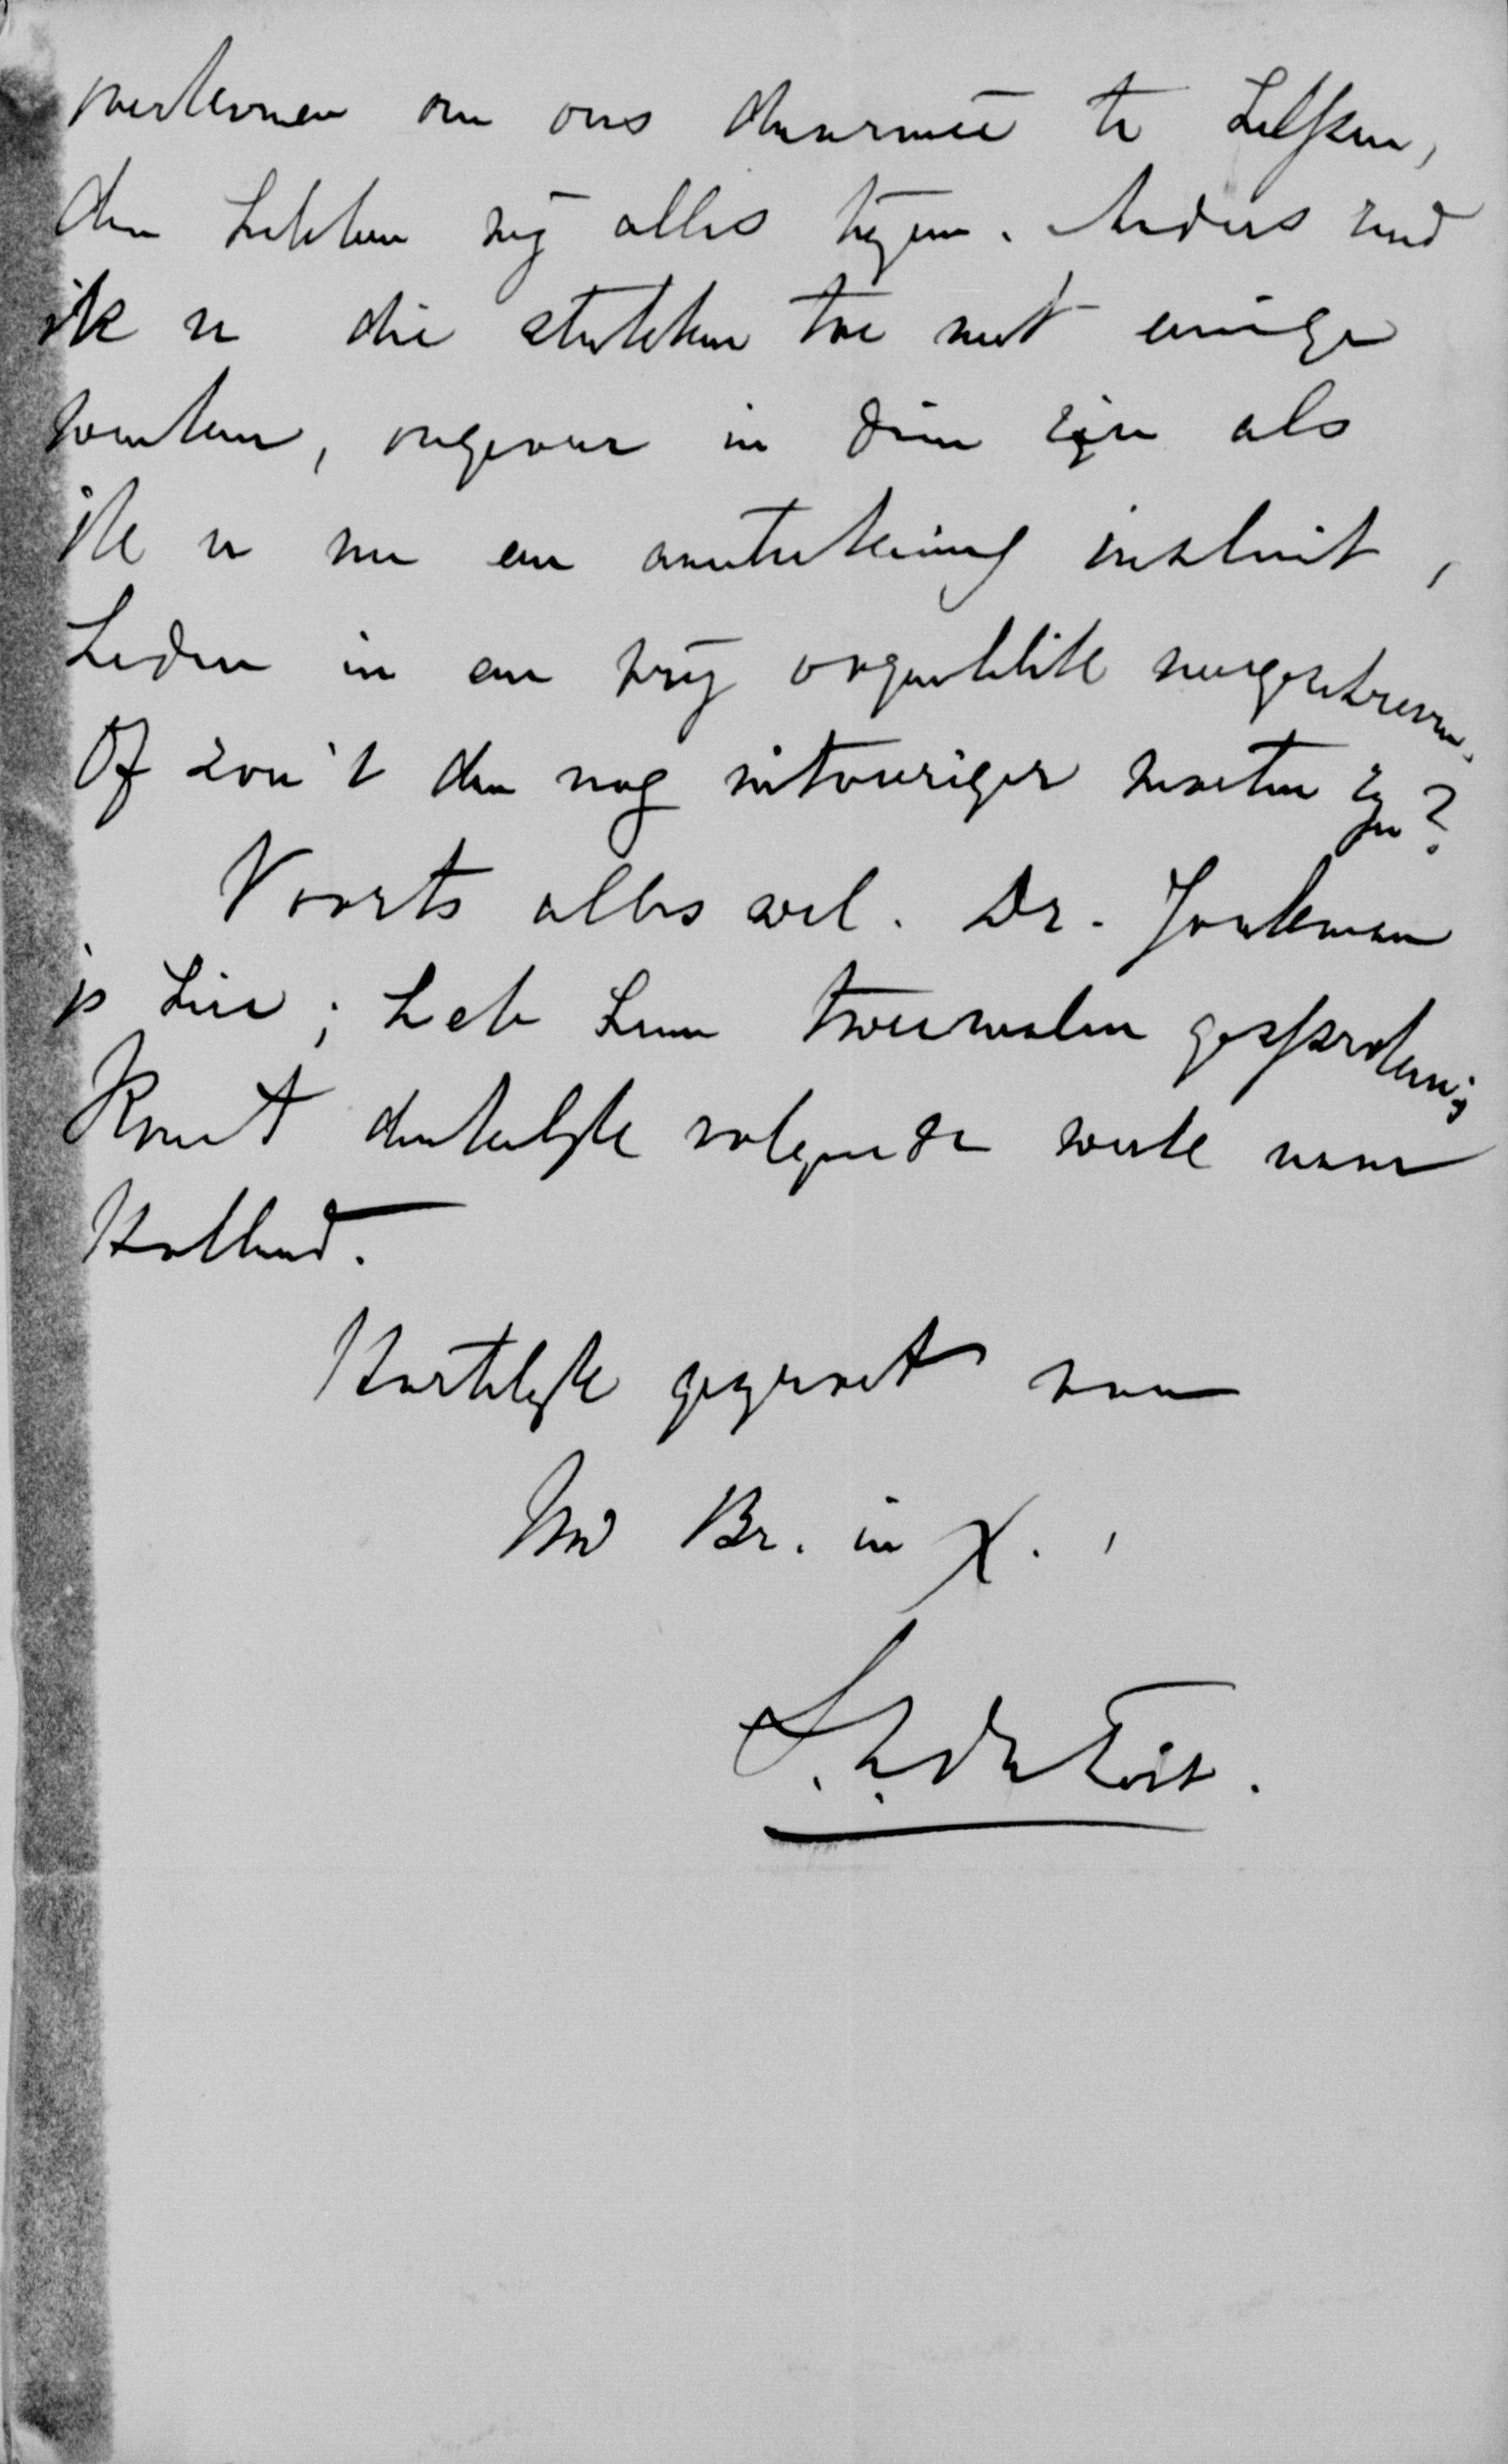 overkomen om ons daarmeê te helpen,
dan hebben wij alles tegen. Anders zend
ik u die stukken toe met eenige
wenken, ongeveer in dien zin als
ik u nu een aanteekening insluit,
heden in een vrij oogenblik neergeschreven.
Of zou't dan nog uitvoeriger moeten zijn?
Voorts alles wel. Dr.
is hier; heb hem tweemalen gesproken;
Komt dentelijk volgende week naar
Holland.
Hartelijk gegroet van
Uw Br. in X.,
S. J. du Toit.